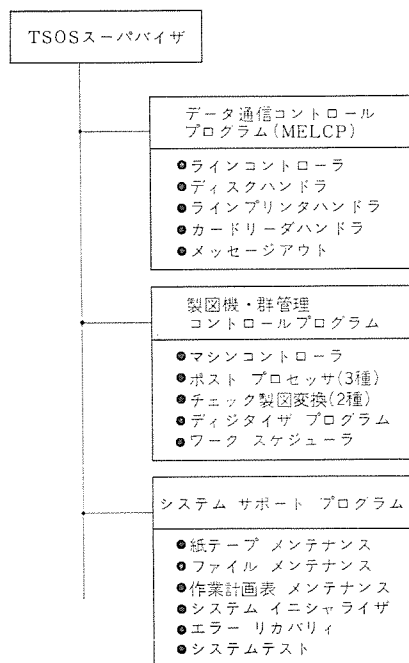 TSOSスーパバイザ
データ通信コントロール
プログラム(MELCP)
●ラインコントローラ
●ディスクハンドラ
●ラインプリンタハンドラ
●カードリーダハンドラ
●メッセージアウト
製図機・群管理
コントロールプログラム
●マシンコントローラ
●ポスト プロセッサ(3種)
●チェック製図変換(2種)
●ディジタイザ プログラム
●ワーク スケジューラ
システム サポート プログラム
●紙テープ メンテナンス
●ファイル メンテナンス
●作業計画表 メンテナンス
●システム イニシャライザ
●エラー リカバリィ
●システムテスト